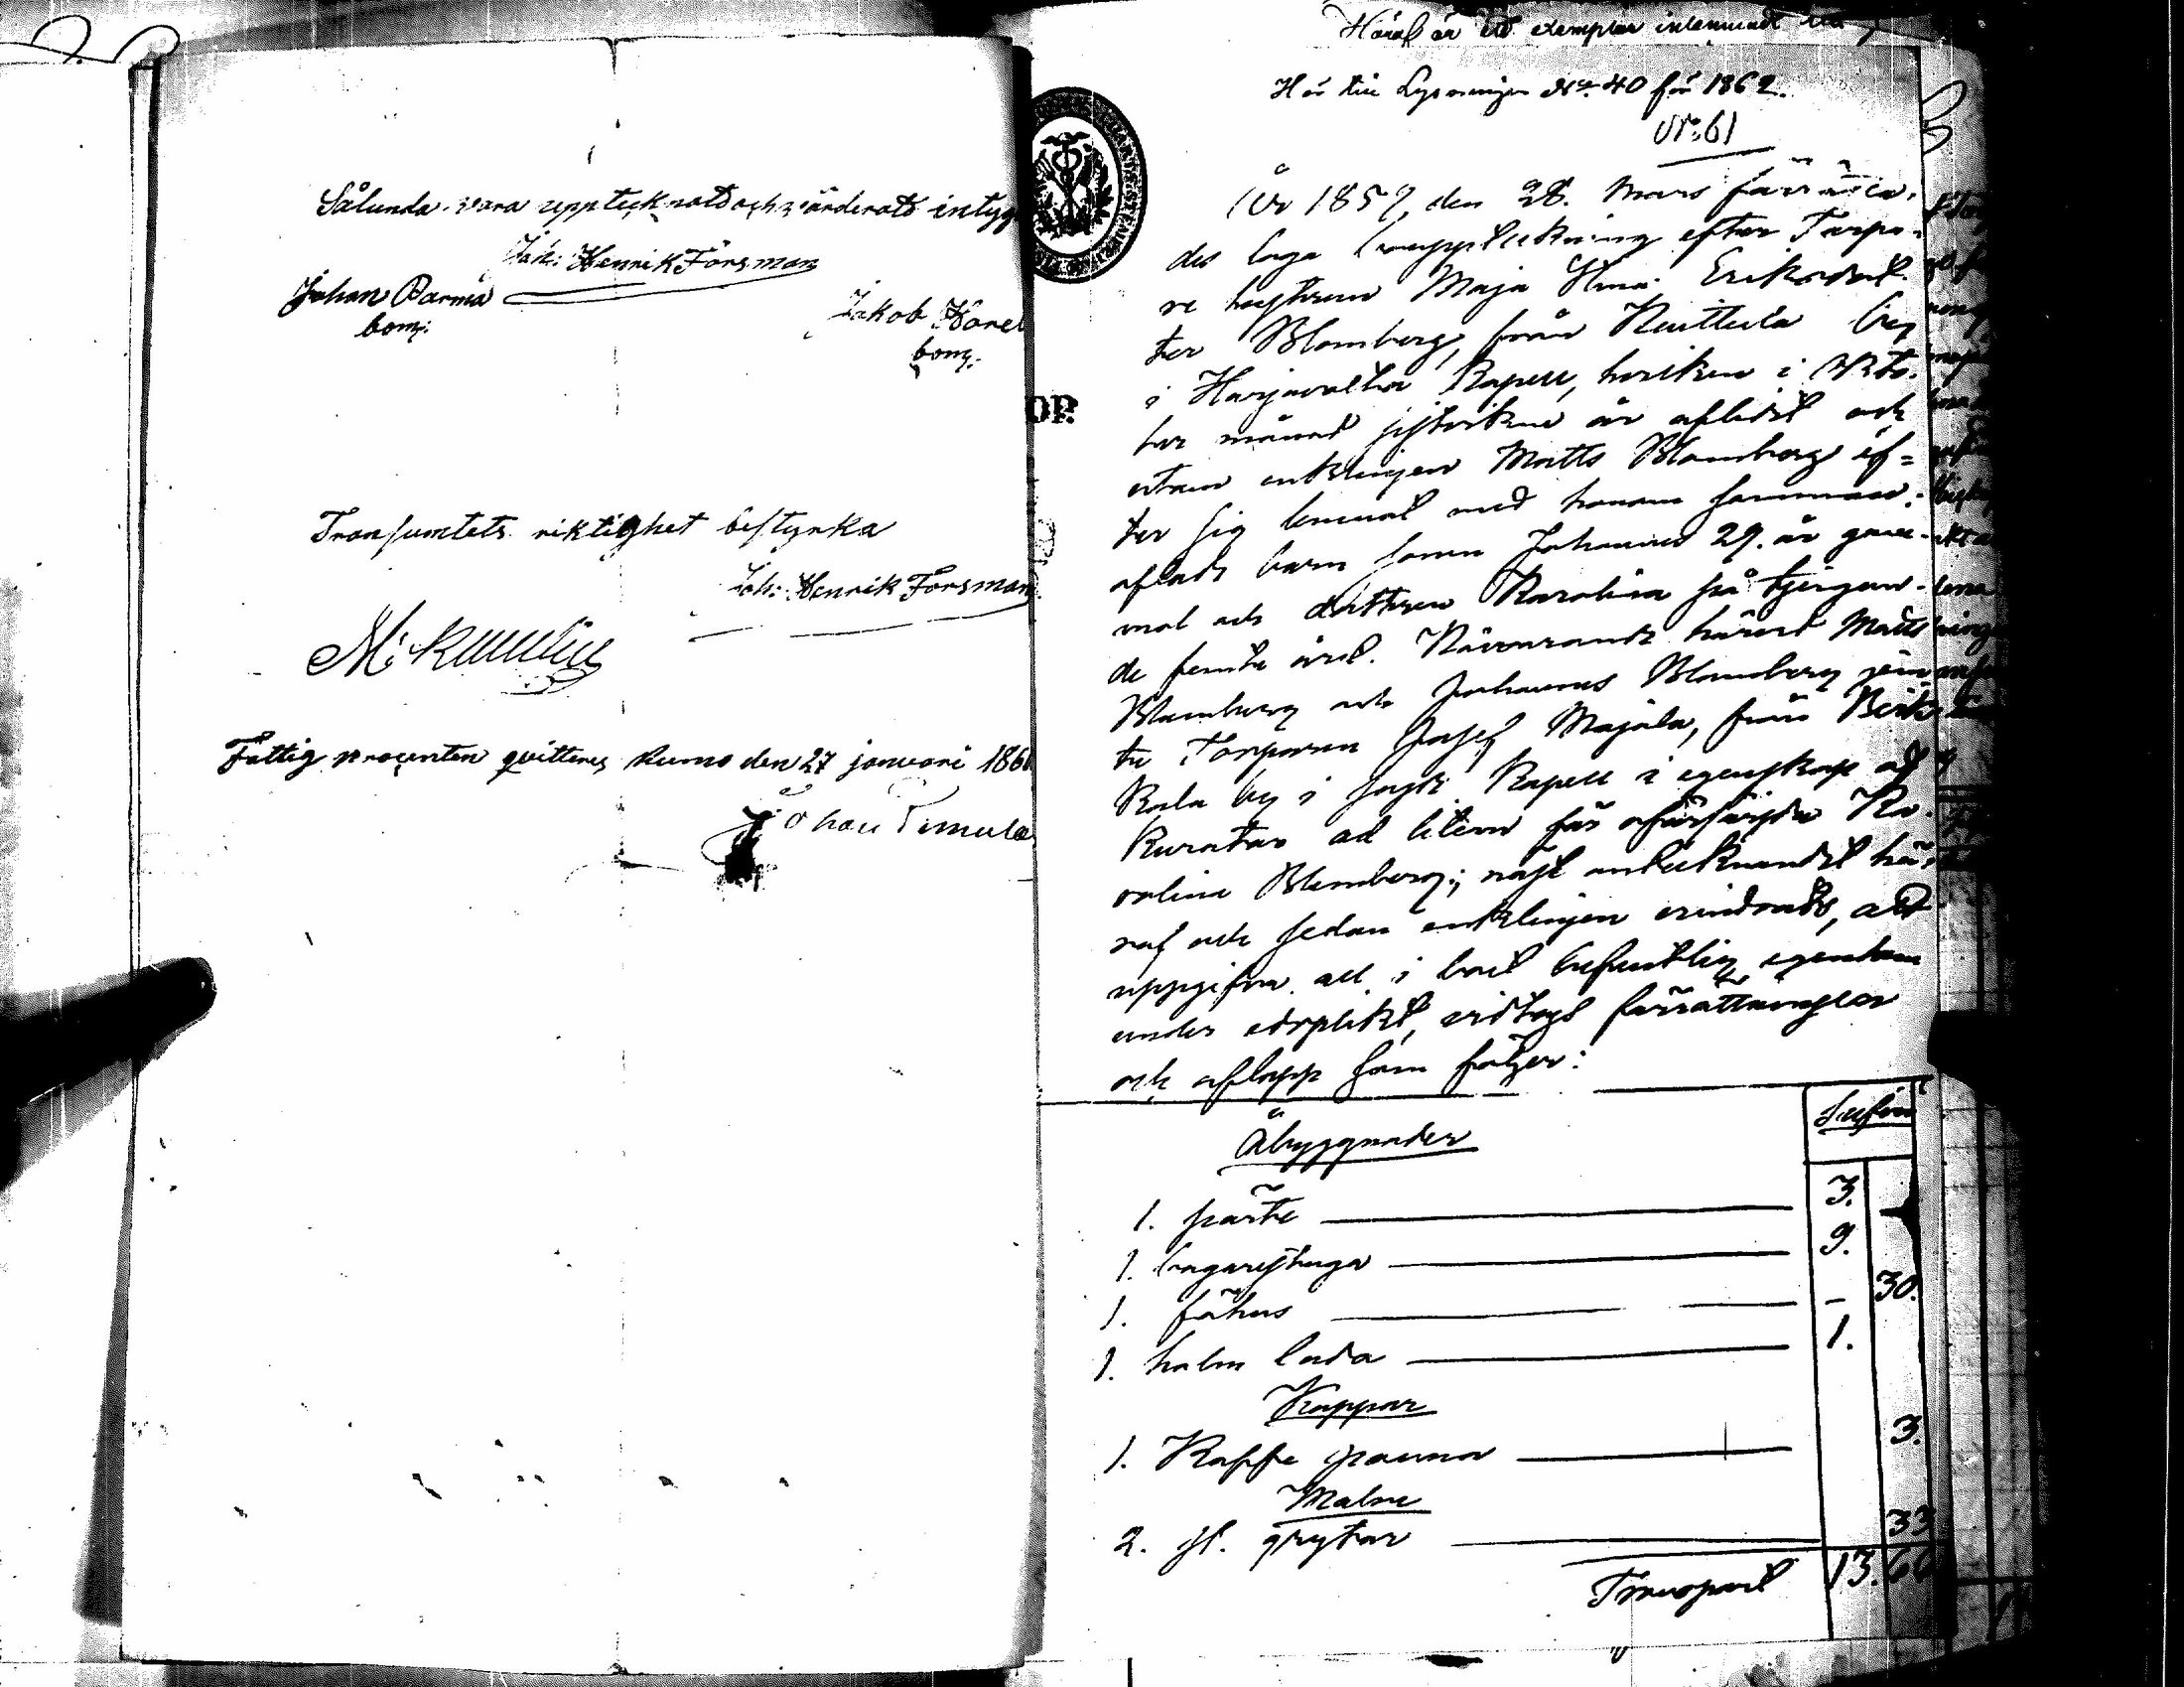 Sålunda vara upptecknadt och värderadt intyg
Joh: Henrik Forsman
Johan Parma
bom:
Jakob Kare
bom:
Transumtets riktighet bestyrka
Joh: Henrik Forsman
Fattig procenten qvitteras Kumo den 27 januari 186
Johan
Häraf är ett exemplar inlemnadt till
Hör till Lysningen No 40 för 1862.
No: 61
År 1859, den 28. Mars förrätta-
des laga bouppteckning efter Torpa-
re hustrun Maja Stina Eriksdot-
ter Blomberg, från by
i Harjavalta Kapell, hvilken i Okto-
ber månad sistvikne år aflidit och
utom enklingen Matts Blomberg ef=
ter sig lemnat med honom samman-
aflade barn sonen Johannes 29. år gam-
mal och dottren Karolina på tjugon-
de femte året. Närvarande härvid Matts
Blomberg och Johannes Blomberg jem-
te Torparen Josef Majala, från
Kala by i sagde Kapell i egenskap af
Kurator ad litem för oförsörjda Ka-
rolina Blomberg; näst antecknandet hä-
raf och sedan enklingen erindrats, att
uppgifva all i boet befintlig egendom
under edsplikt, vidtogs förrättningen
och aflopp som följer:
Åbyggnader
Silfver
1. pörte 3.
1. bagarstuga 9.
1. fähus - 30.
1. halm lada 1.
Koppar
1. Kaffe panna 3.
Malm
2. st. grytor 33
Transport 13. 66